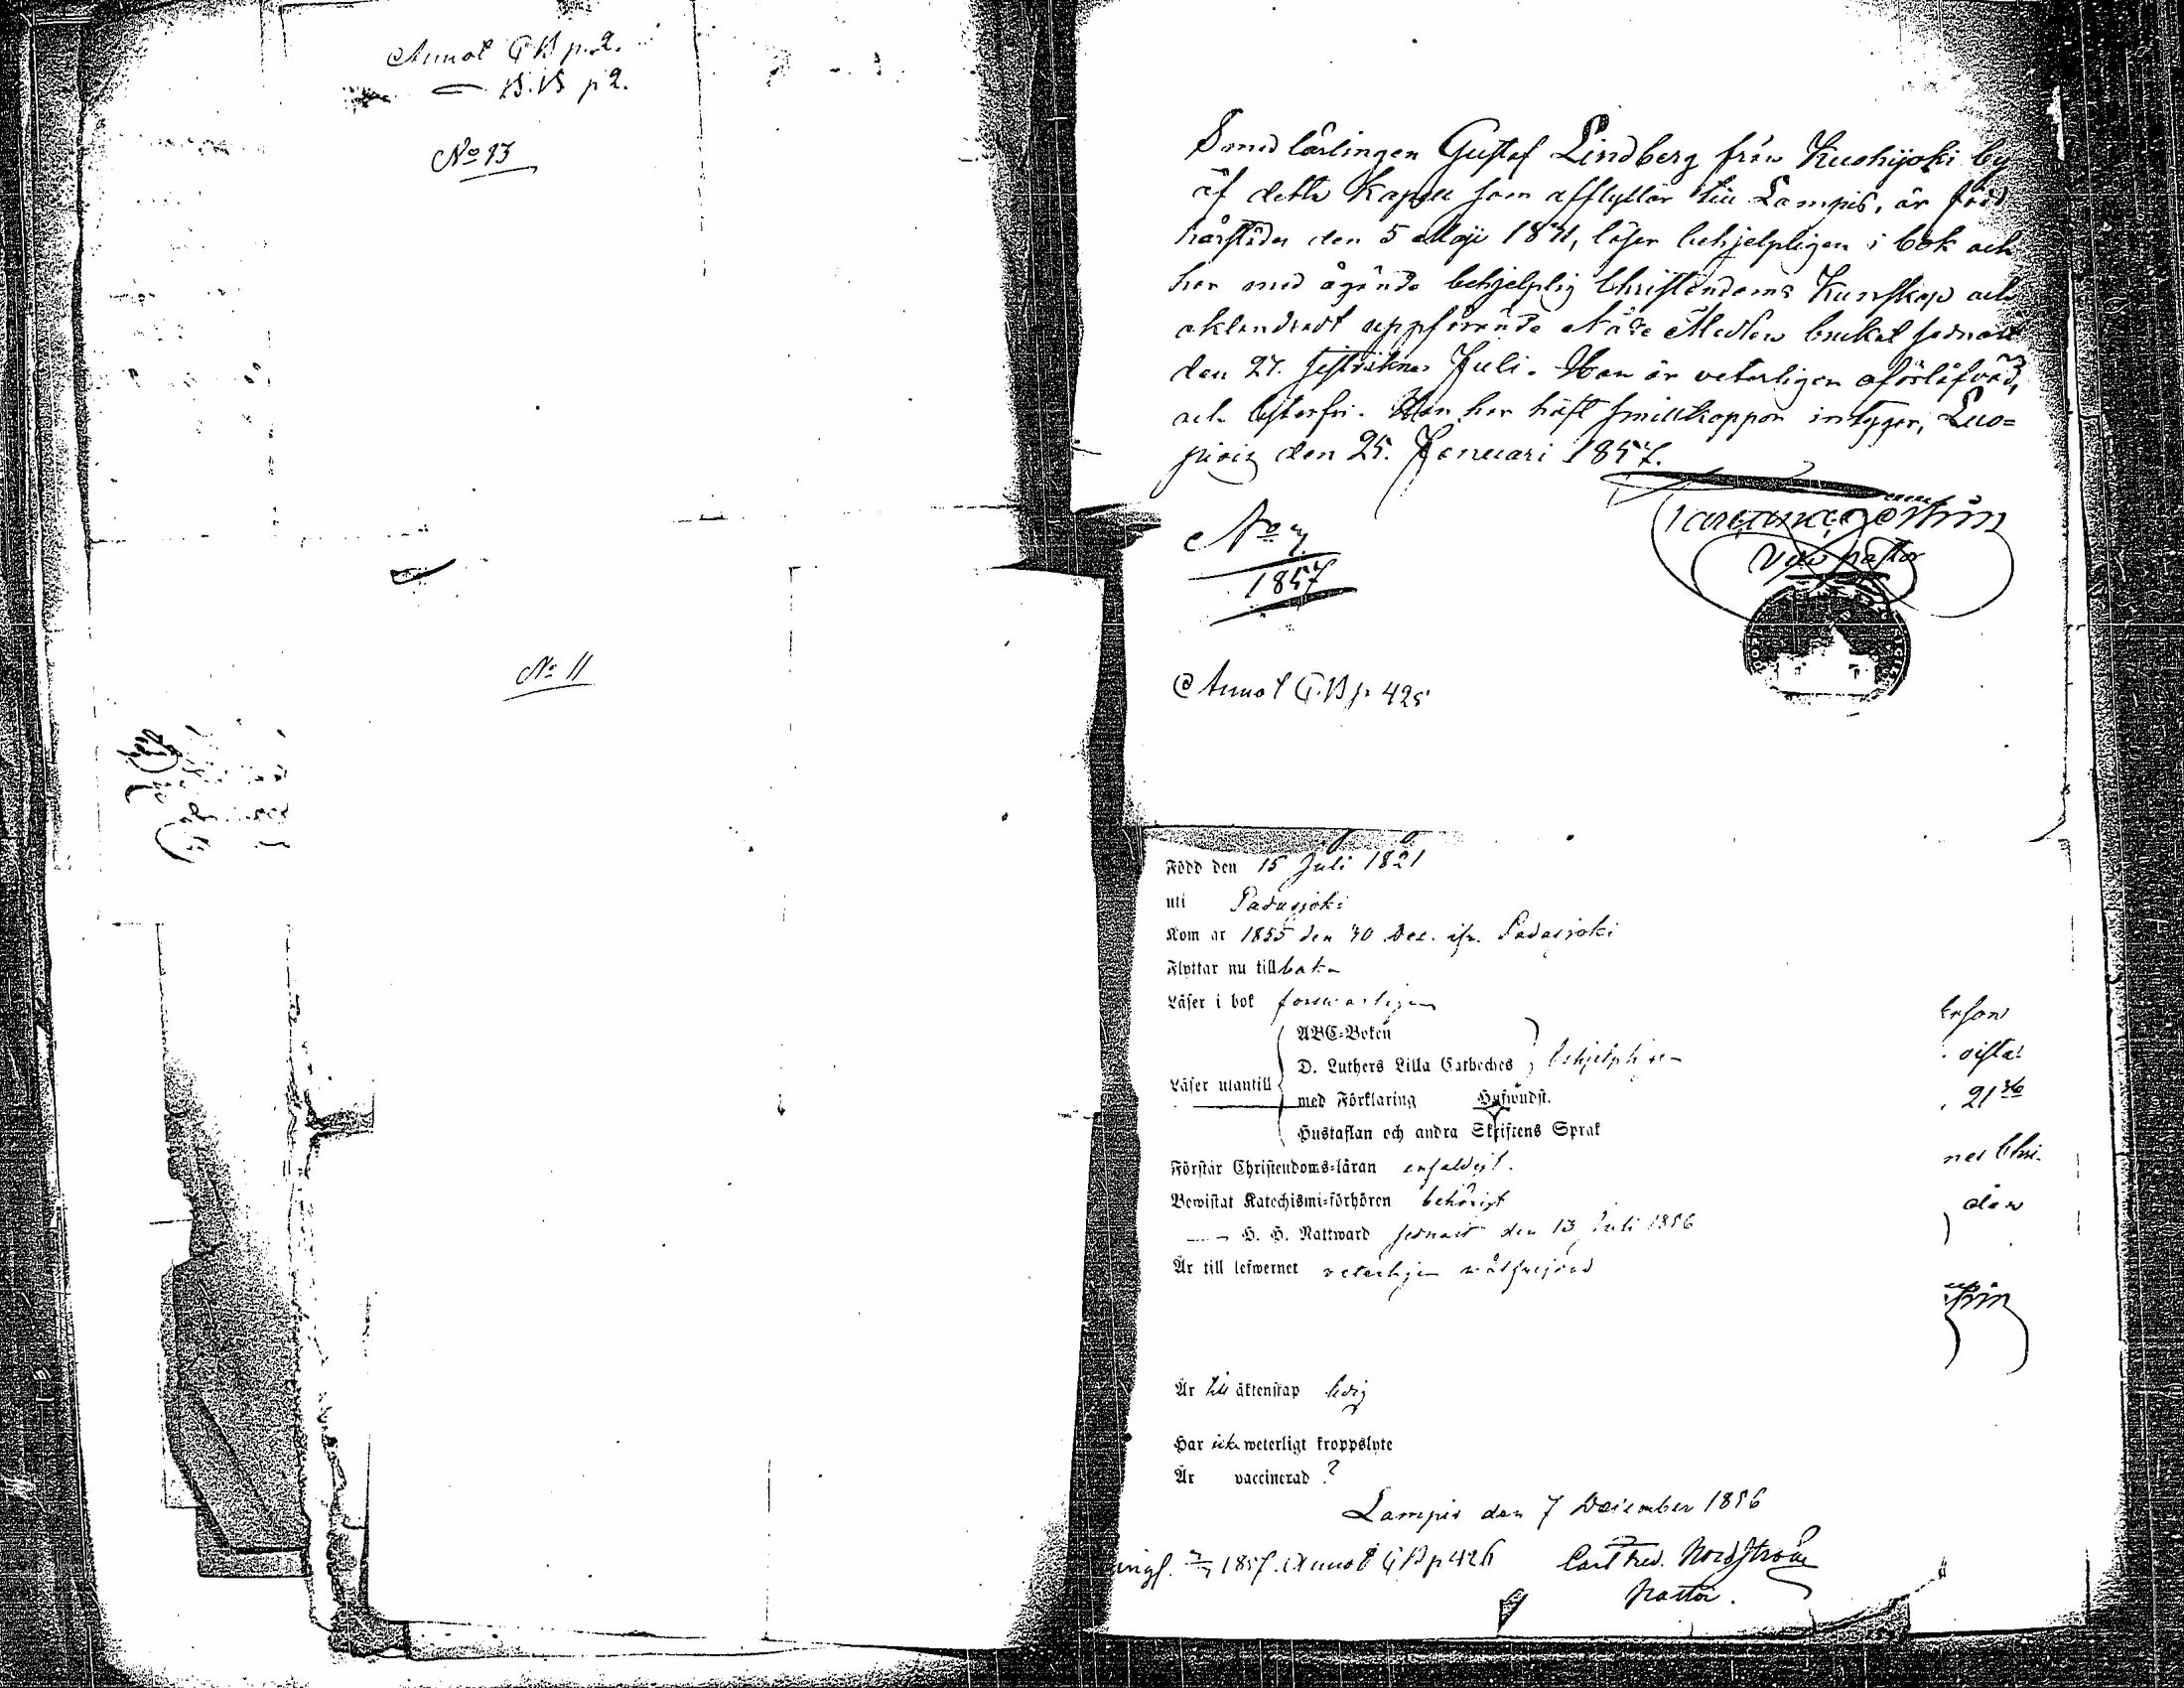 Annot C.B p. 2.
— B.B p 2.
No 13
No 11
Smedlärlingen Gustaf Lindberg från Kuohijoki by
af detta Kapell som afflyttar till Lampis, är född
härstädes den 5 Maji 1841, läser behjelpligen i bok och
har med ägande behjelplig Christendoms Kunskap och
oklandradt uppförande Nåde Medlen brukat sednast
den 27. sistvikne Juli. Han är veterligen oförlåfvad,
och lysterfri. Han har haft smittkoppor intygar, Luo=
pioiz den 25. Januari 1857.
vice pastor
No 7
1857
Annot C.B p. 425
Född den 15 Juli 1821
uti Padasjoki
Kom år 1855 den 30 Dec. ifr. Padasjoki
Flyttar nu tillbaka
Läser i bok försvarligen
ABC-Boken
D. Luthers Lilla Catheches } behjelpligen
Läser utantill
med Förklaring Athanasii Husandst.
Hustaflan och andra Skriftens Språk
Förstår Christendoms-läran enfaldigt.
Bewistat Katechismi-förhören behörigt
— — H. H. Nattward sednast den 13 Juli 1856
Är till lefwernet veterligen wälfrejdad
Är till äktenskap ledig
Har icke weterligt kroppslyte
Är vaccinerad ?
Lampis den 7 December 1856
Carl Fred. Nordström
Pastor.
ingf. 1857. Annot C.B p 426
ersson
21
nes Chri.